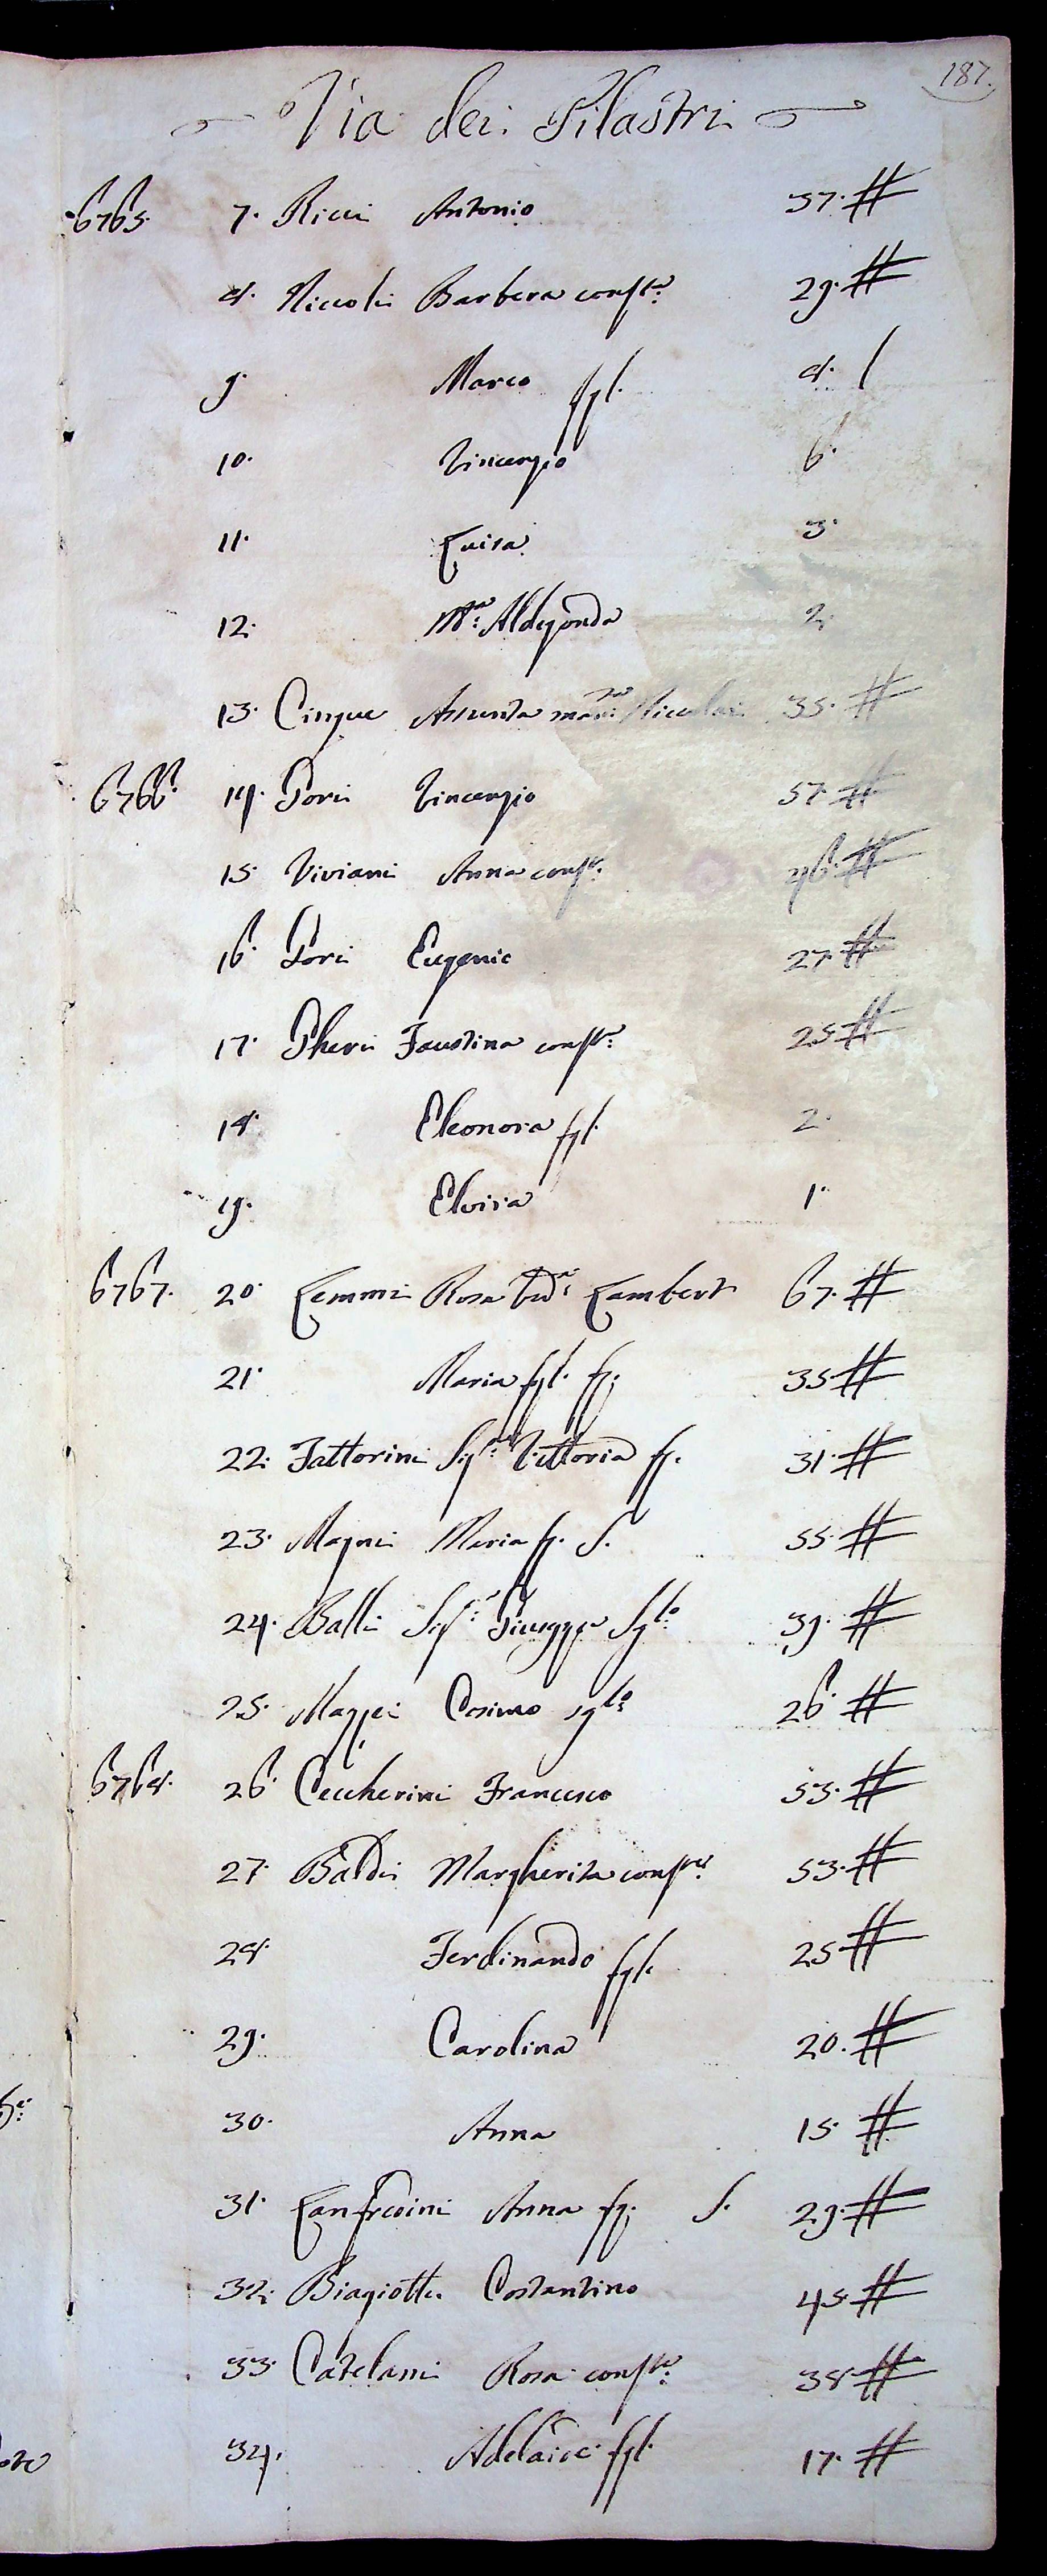 187.
Via dei Pilastri
6765. 7. Ricci Antonio 37. #
8. Niccoli Barbera cons.te 29. #
9. Marco fgl. 8. /
10. Vincenzio 6.
11. Luisa 3.
12. M.a Aldegonda 2.
13. Cinque Assunta Niccolai 35. #
6766. 14. Gori Vincenzio 57. #
15. Viviani Anna cons.te 46. #
16. Gori Eugenio 27. #
17. Gheri Faustina cons.te 25 #
18. Eleonora fgl. 2.
19. Elvira 1.
6767. 20. Lemmi Rosa Ved.a Lamberti 67. #
21. Maria fgl. fz. 35 #
22. Fattorini Sig.ra Vittoria fz. 31. #
23. Magni Maria fz. S. 55. #
24. Balli Sig.r Giuseppe Sg.lo 39. #
25. Mazzei Cosimo sg.lo 26. #
6768. 26. Ceccherini Francesco 53. #
27. Baldi Margherita cons.te 53. #
28. Ferdinando fgl. 25 #
29. Carolina 20. #
30. Anna 15. #
31. Lanfredini Anna fz. S. 29. #
32. Biagiotti Costantino 45 #
33. Catelani Rosa cons.te 38 #
34. Adelaide fgl. 17. #